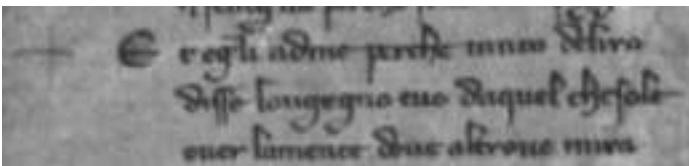 E t egli adme perche tanto delira
disse longegno tuo daquel chesole
ouer lamente doue altroue mira